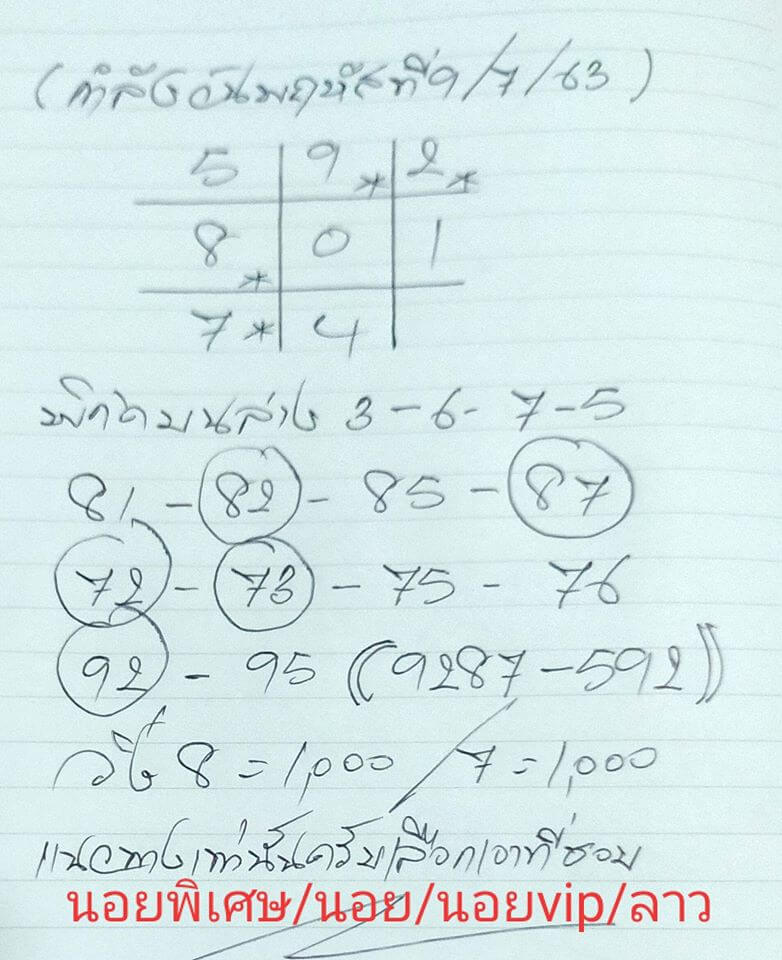 (กำลังวันพฤหัสที่ 9/7/63)
5 9* 2*
8* 0 1
7* 4
พิกัดบนล่าง 3-6-7-5
81-82-85-87
72-73-75-76
92-95 ((9287-592))
วิ่ง 8=1,000 / 7=1,000
แนวทางเท่านั้นครับเลือกเอาที่ชอบ
นอยพิเศษ/นอย/นอยvip/ลาว